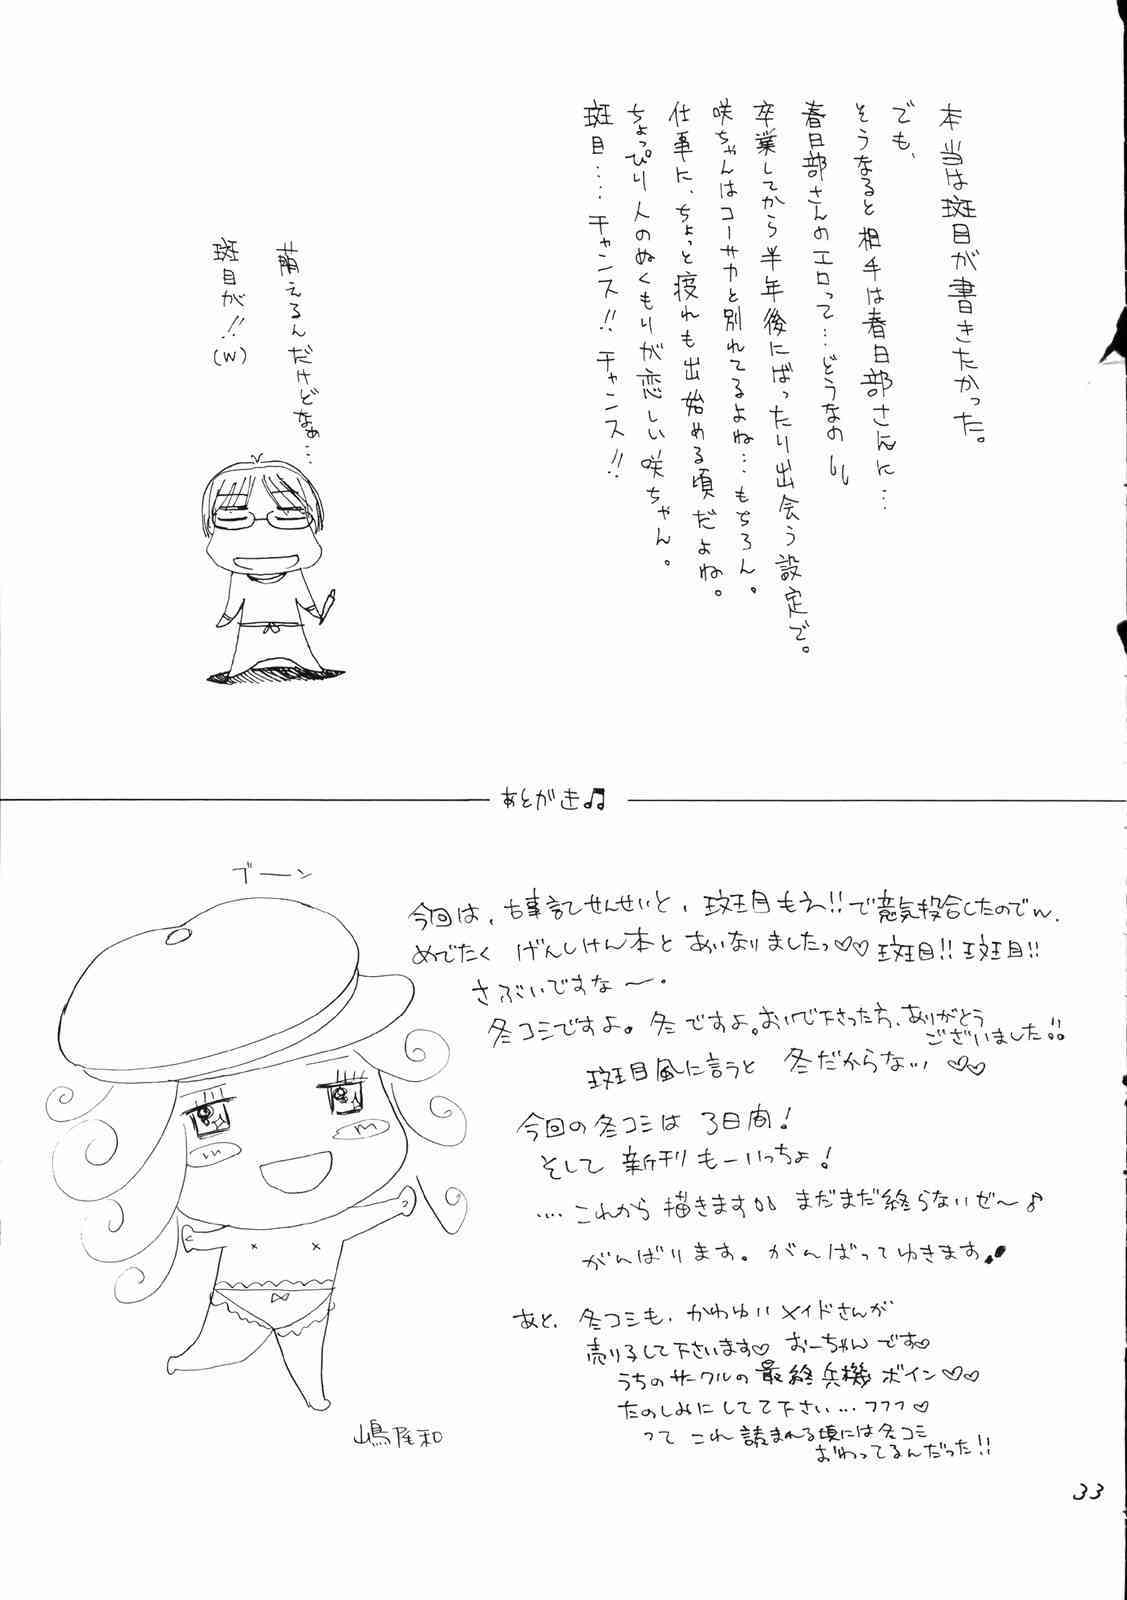 本当は斑目が書きたかった。
でも、
そうなると相手は春日部さんに…
春日部さんのエロって…どうなの
卒業してから半年後にばったり出会う設定で。
咲ちゃんはコーサカと別れてるよね…もちろん。
仕事に、ちょっと疲れも出始める頃だよね。
ちょっぴり人のぬくもりが恋しい咲ちゃん。
斑目…チャンス!!チャンス!!
萌えるんだけどなぁ…
斑目が!!(w)
あとがき♫
ブーン
今回は、古事記せんせいと、斑目もえ!!で意気投合したのでw.
めでたく げんしけん本と あいなりましたっ♡♡ 斑目!! 斑目!!
さぶいですな〜.
冬コミですよ。冬ですよ。おいで下さった方、ありがとう
ございました!!
斑目風に言うと 冬だからなッ ♡♡
今回の冬コミは 3日間!
そして 新刊 もーいっちょ!
…これから描きます まだまだ終らないゼ〜♪
がんばります。がんばってゆきます
あと、冬コミも、かわゆいメイドさんが
売り子して下さいます♡ おーちゃんです♡
うちのサークルの最終兵機 ボイン♡♡
たのしみにしてて下さい…フフフ♡
って これ 読まれる頃には冬コミ
おわってるんだった!!
嶋屋和
33